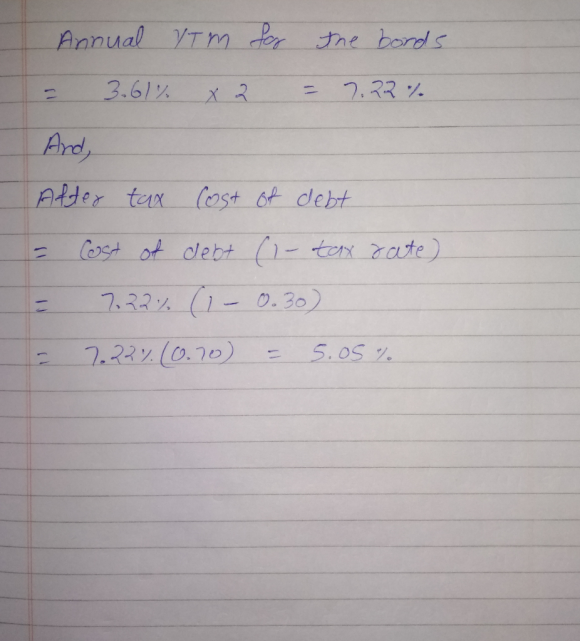 Annual YTM for the bonds
= 3.61% x 2 = 7.22%
And,
After tax Cost of debt
= Cost of debt (1 - tax rate)
= 7.22% (1 - 0.30)
= 7.22% (0.70) = 5.05%